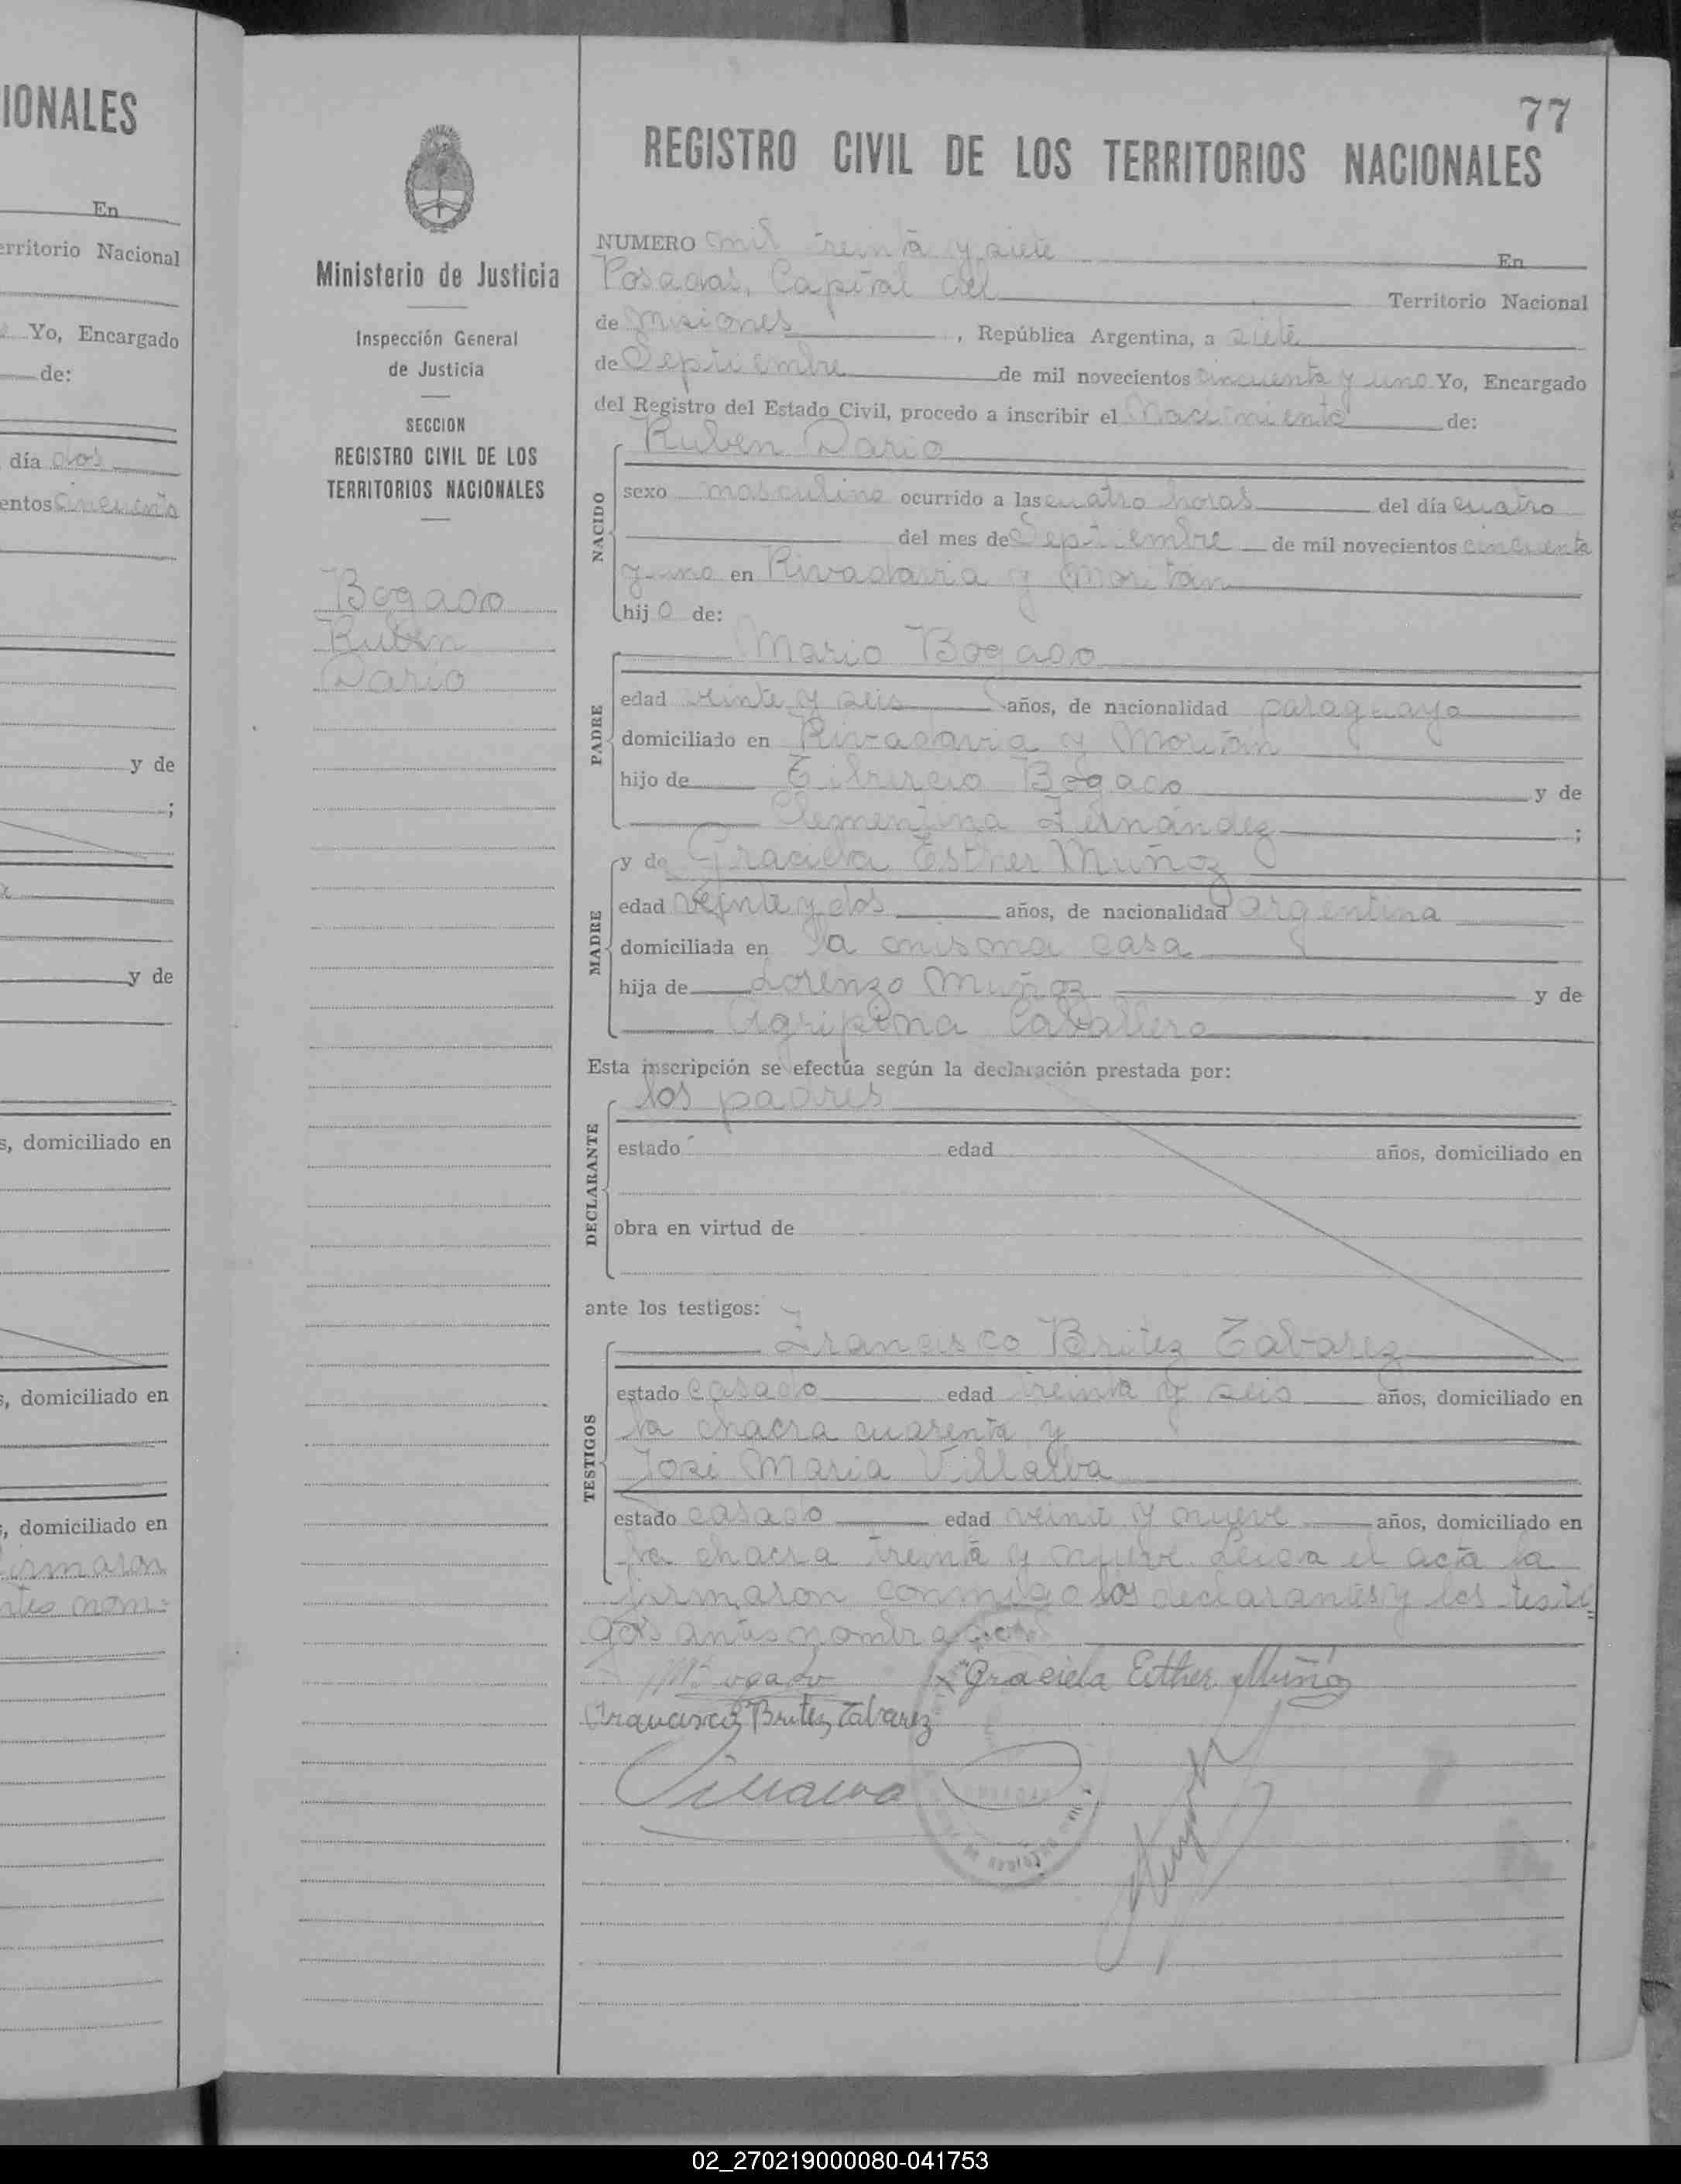 IONALES
En
erritorio Nacional
Yo, Encargado
de:
día dos
entos cincuenta
y de
;
y de
s, domiciliado en
s, domiciliado en
, domiciliado en
firmaron
ntes nom-
Ministerio de Justicia
Inspección General
de Justicia
SECCION
REGISTRO CIVIL DE LOS
TERRITORIOS NACIONALES
Bogado
Ruben
Dario
77
REGISTRO CIVIL DE LOS TERRITORIOS NACIONALES
NUMERO mil treinta y siete En
Posadas, Capital del Territorio Nacional
de Misiones, República Argentina, a siete
de Septiembre de mil novecientos cincuenta y uno Yo, Encargado
del Registro del Estado Civil, procedo a inscribir el Nacimiento de:
Ruben Dario
NACIDO
sexo masculino ocurrido a las cuatro horas del día cuatro
del mes de Septiembre de mil novecientos cincuenta
y uno en Rivadavia y Moritan
hijo de:
Mario Bogado
PADRE
edad veinte y seis años, de nacionalidad paraguayo
domiciliado en Rivadavia y Moritan
hijo de Tiburcio Bogado y de
Clementina Fernández ;
y de Graciela Esther Muñoz
MADRE
edad veinte y dos años, de nacionalidad argentina
domiciliada en la misma casa
hija de Lorenzo Muñoz y de
Agripina Caballero
Esta inscripción se efectúa según la declaración prestada por:
los padres
DECLARANTE
estado edad años, domiciliado en
obra en virtud de
ante los testigos:
Francisco Britez Tabarez
TESTIGOS
estado casado edad treinta y seis años, domiciliado en
la chacra cuarenta y
José Maria Villalba
estado casado edad veinte y nueve años, domiciliado en
la chacra treinta y nueve. Leida el acta la
firmaron conmigo los declarantes y los testi-
gos antes nombrados
MBogado Graciela Esther Muñoz
Francisco Britez Tabarez
Villalba
02_270219000080-041753